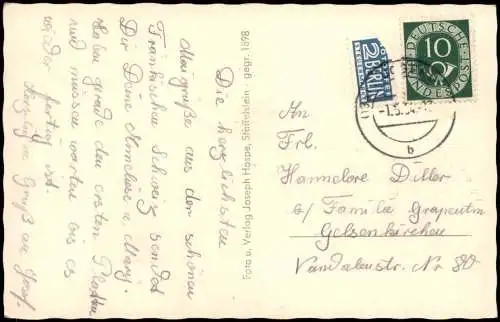 Die herzlichsten
Maigrüße aus der schönen
Fränkischen Schweiz sendet
Dir Deine Anneliese u. Mary.
Haben gerade den ersten Platten
und müssen warten bis es
wieder fertig ist.
Gruß an Josef.
Foto u. Verlag Joseph Hospe, Staffelstein - gegr. 1898
NOTOPFER
2 BERLIN
STEUERMARKE
DEUTSCHE
10
BUNDESPOST
-1.5.54
b
An
Frl.
Hannelore Diller
b/ Familie Grapentin
Gelsenkirchen
Vandalenstr. Nr 80